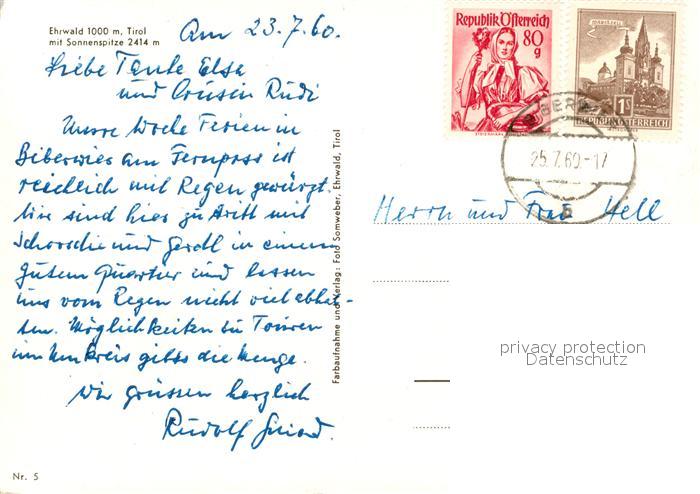 Ehrwald 1000 m, Tirol
mit Sonnenspitze 2414 m
Am 23.7.60.
Liebe Tante Elsa
und Cousin Rudi
Unsre Woche Ferien in
Biberwier am Fernpass ist
reichlich mit Regen gewürzt.
Wir sind hier zu dritt mit
Schorschi und Gerdl in einem
guten Quartier und lassen
uns vom Regen nicht viel abhal-
ten. Möglichkeiten zu Touren
im Umkreis gibts die Menge.
Wir grüssen herzlich
Rudolf
Nr. 5
Farbaufnahme und Verlag: Foto Somweber, Ehrwald, Tirol
Republik Österreich
80
g
MARIAZELL
1S
REPUBLIK ÖSTERREICH
25.7.60.-17
Herrn und Frau Hell
privacy protection
Datenschutz